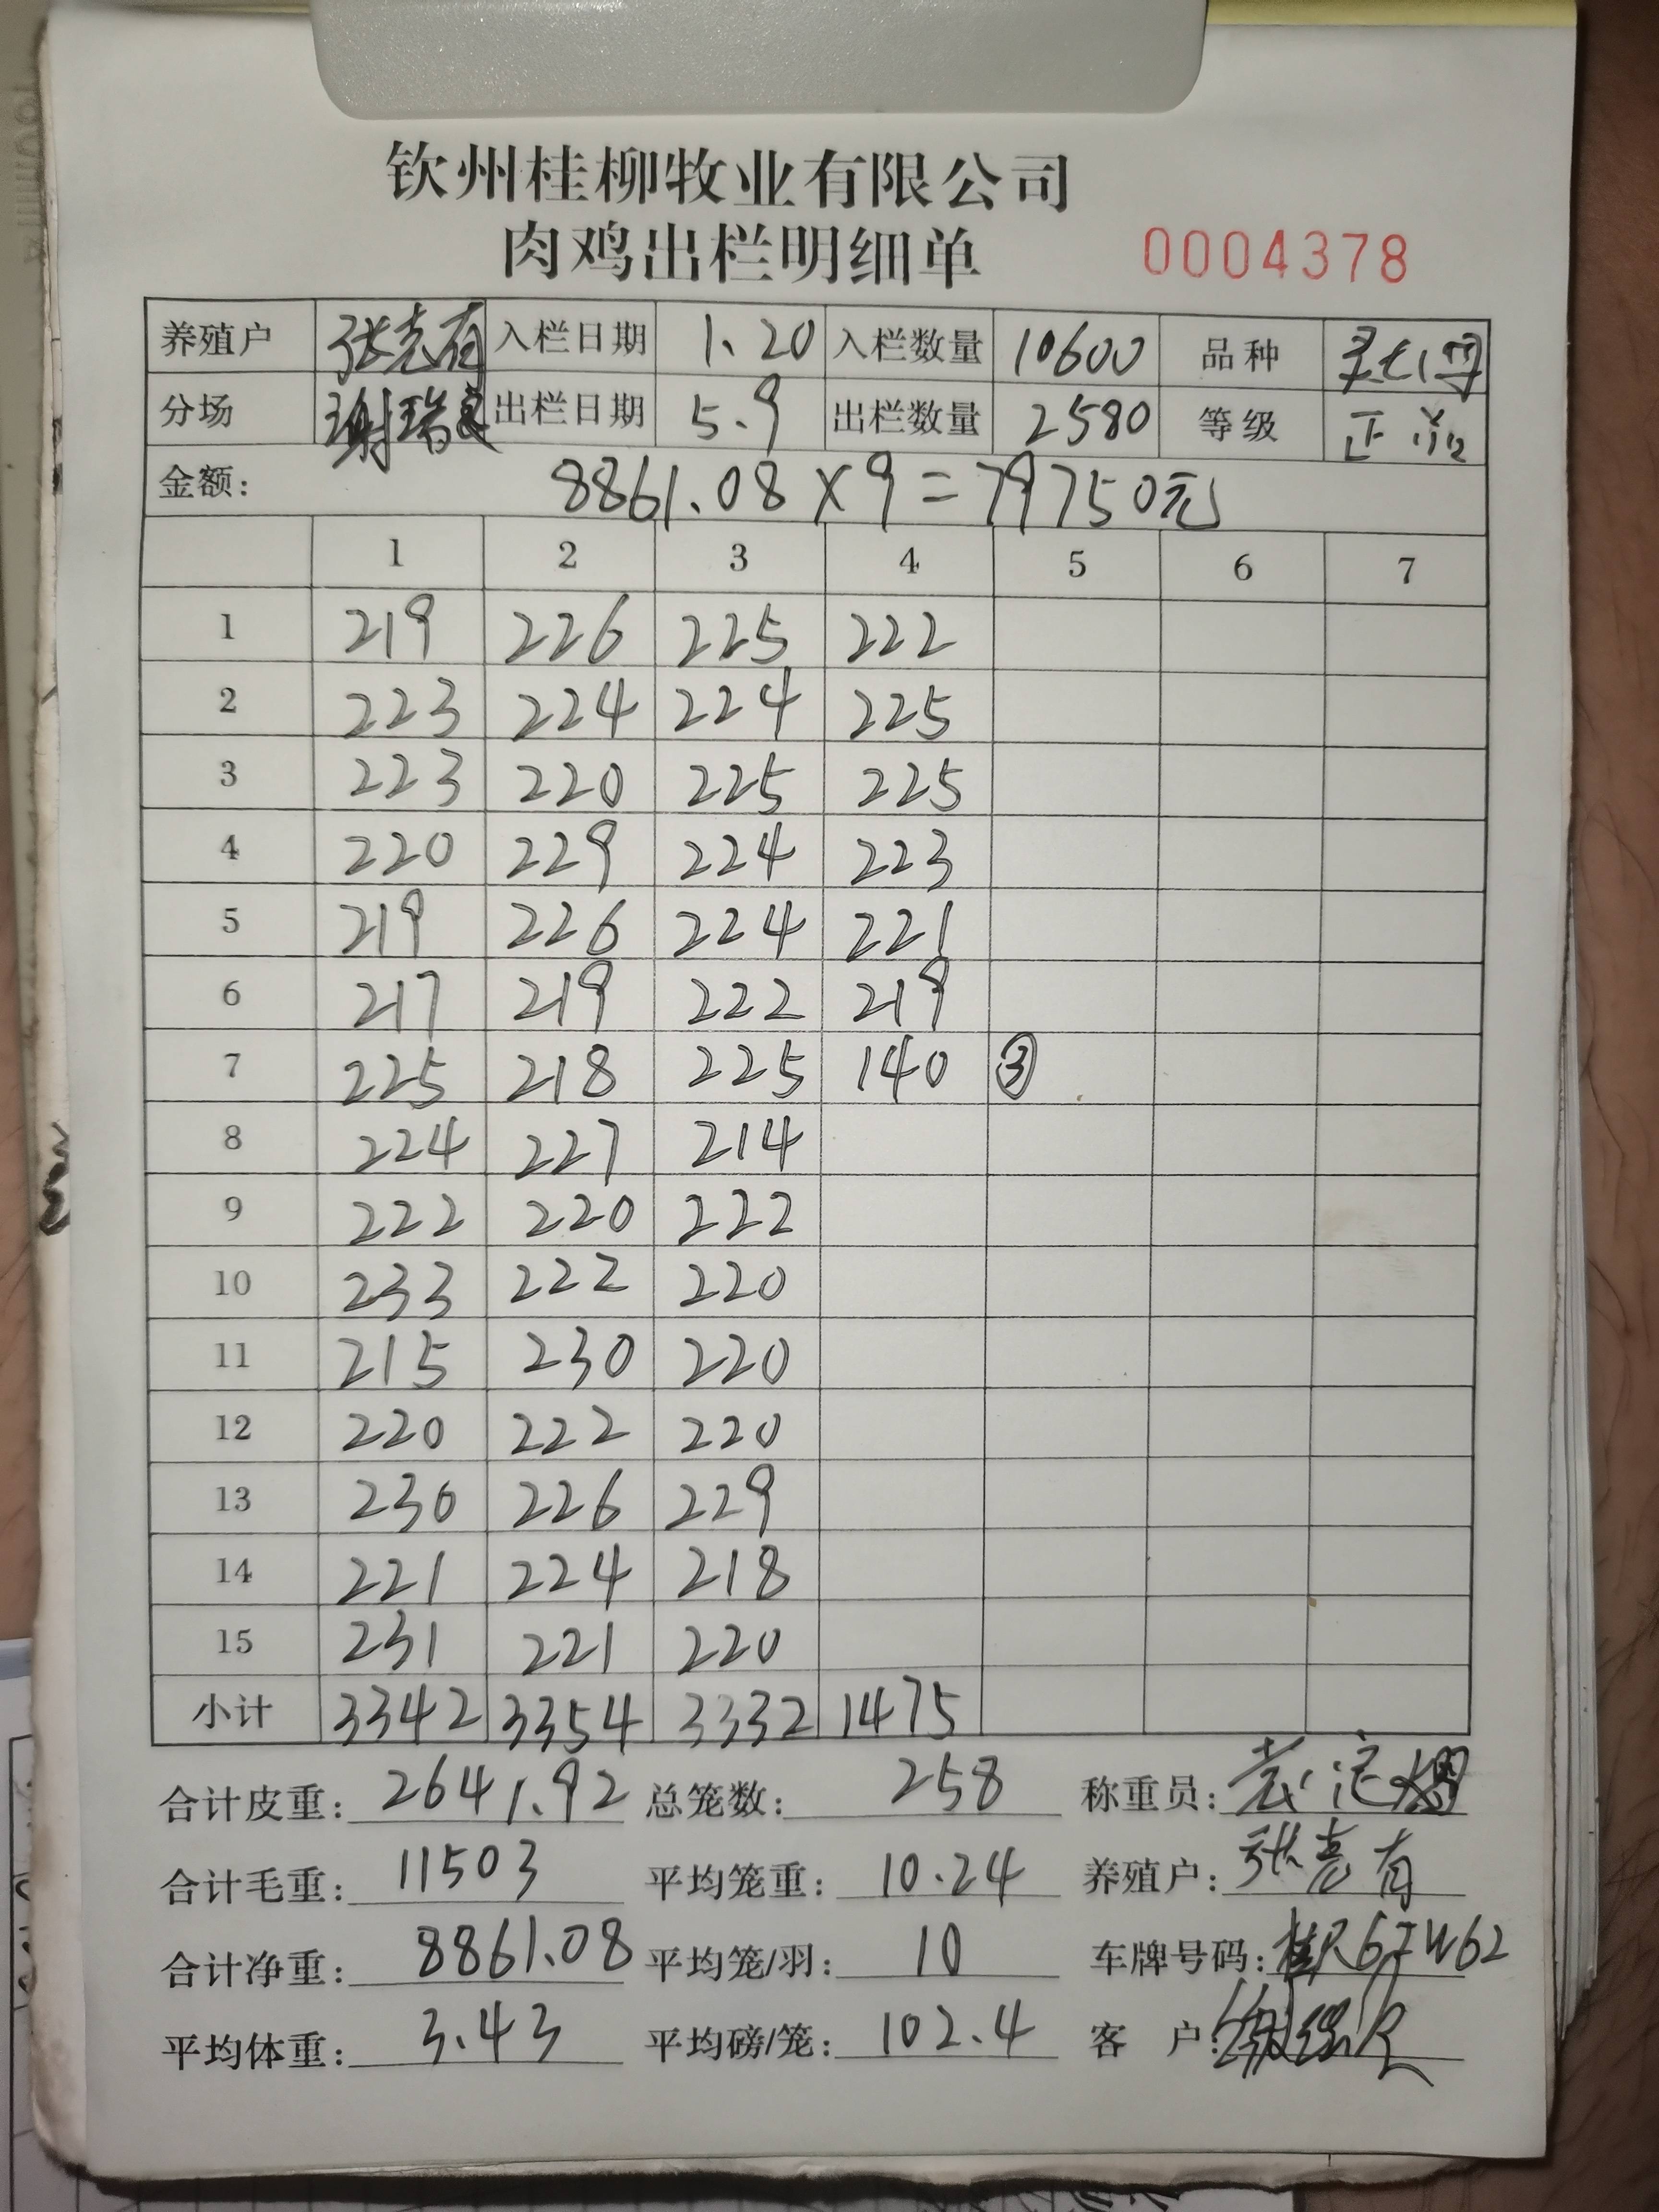 钦州桂柳牧业有限公司
肉鸡出栏明细单 0004378
养殖户 张亮有 入栏日期 1.20 入栏数量 10600 品种
分场 谢瑞良 出栏日期 5.9 出栏数量 2580 等级 正常
金额: 8861.08×9=79750元
1 2 3 4 5 6 7
1 219 226 225 222
2 223 224 224 225
3 223 220 225 225
4 220 229 224 223
5 219 226 224 221
6 217 219 222 219
7 225 218 225 140 ③
8 224 227 214
9 222 220 222
10 233 222 220
11 215 230 220
12 220 222 220
13 230 226 229
14 221 224 218
15 231 221 220
小计 3342 3354 3332 1475
合计皮重: 2641.92 总笼数: 258 称重员:
合计毛重: 11503 平均笼重: 10.24 养殖户: 张亮有
合计净重: 8861.08 平均笼/羽: 10 车牌号码: 桂R67W62
平均体重: 3.43 平均磅/笼: 102.4 客户: